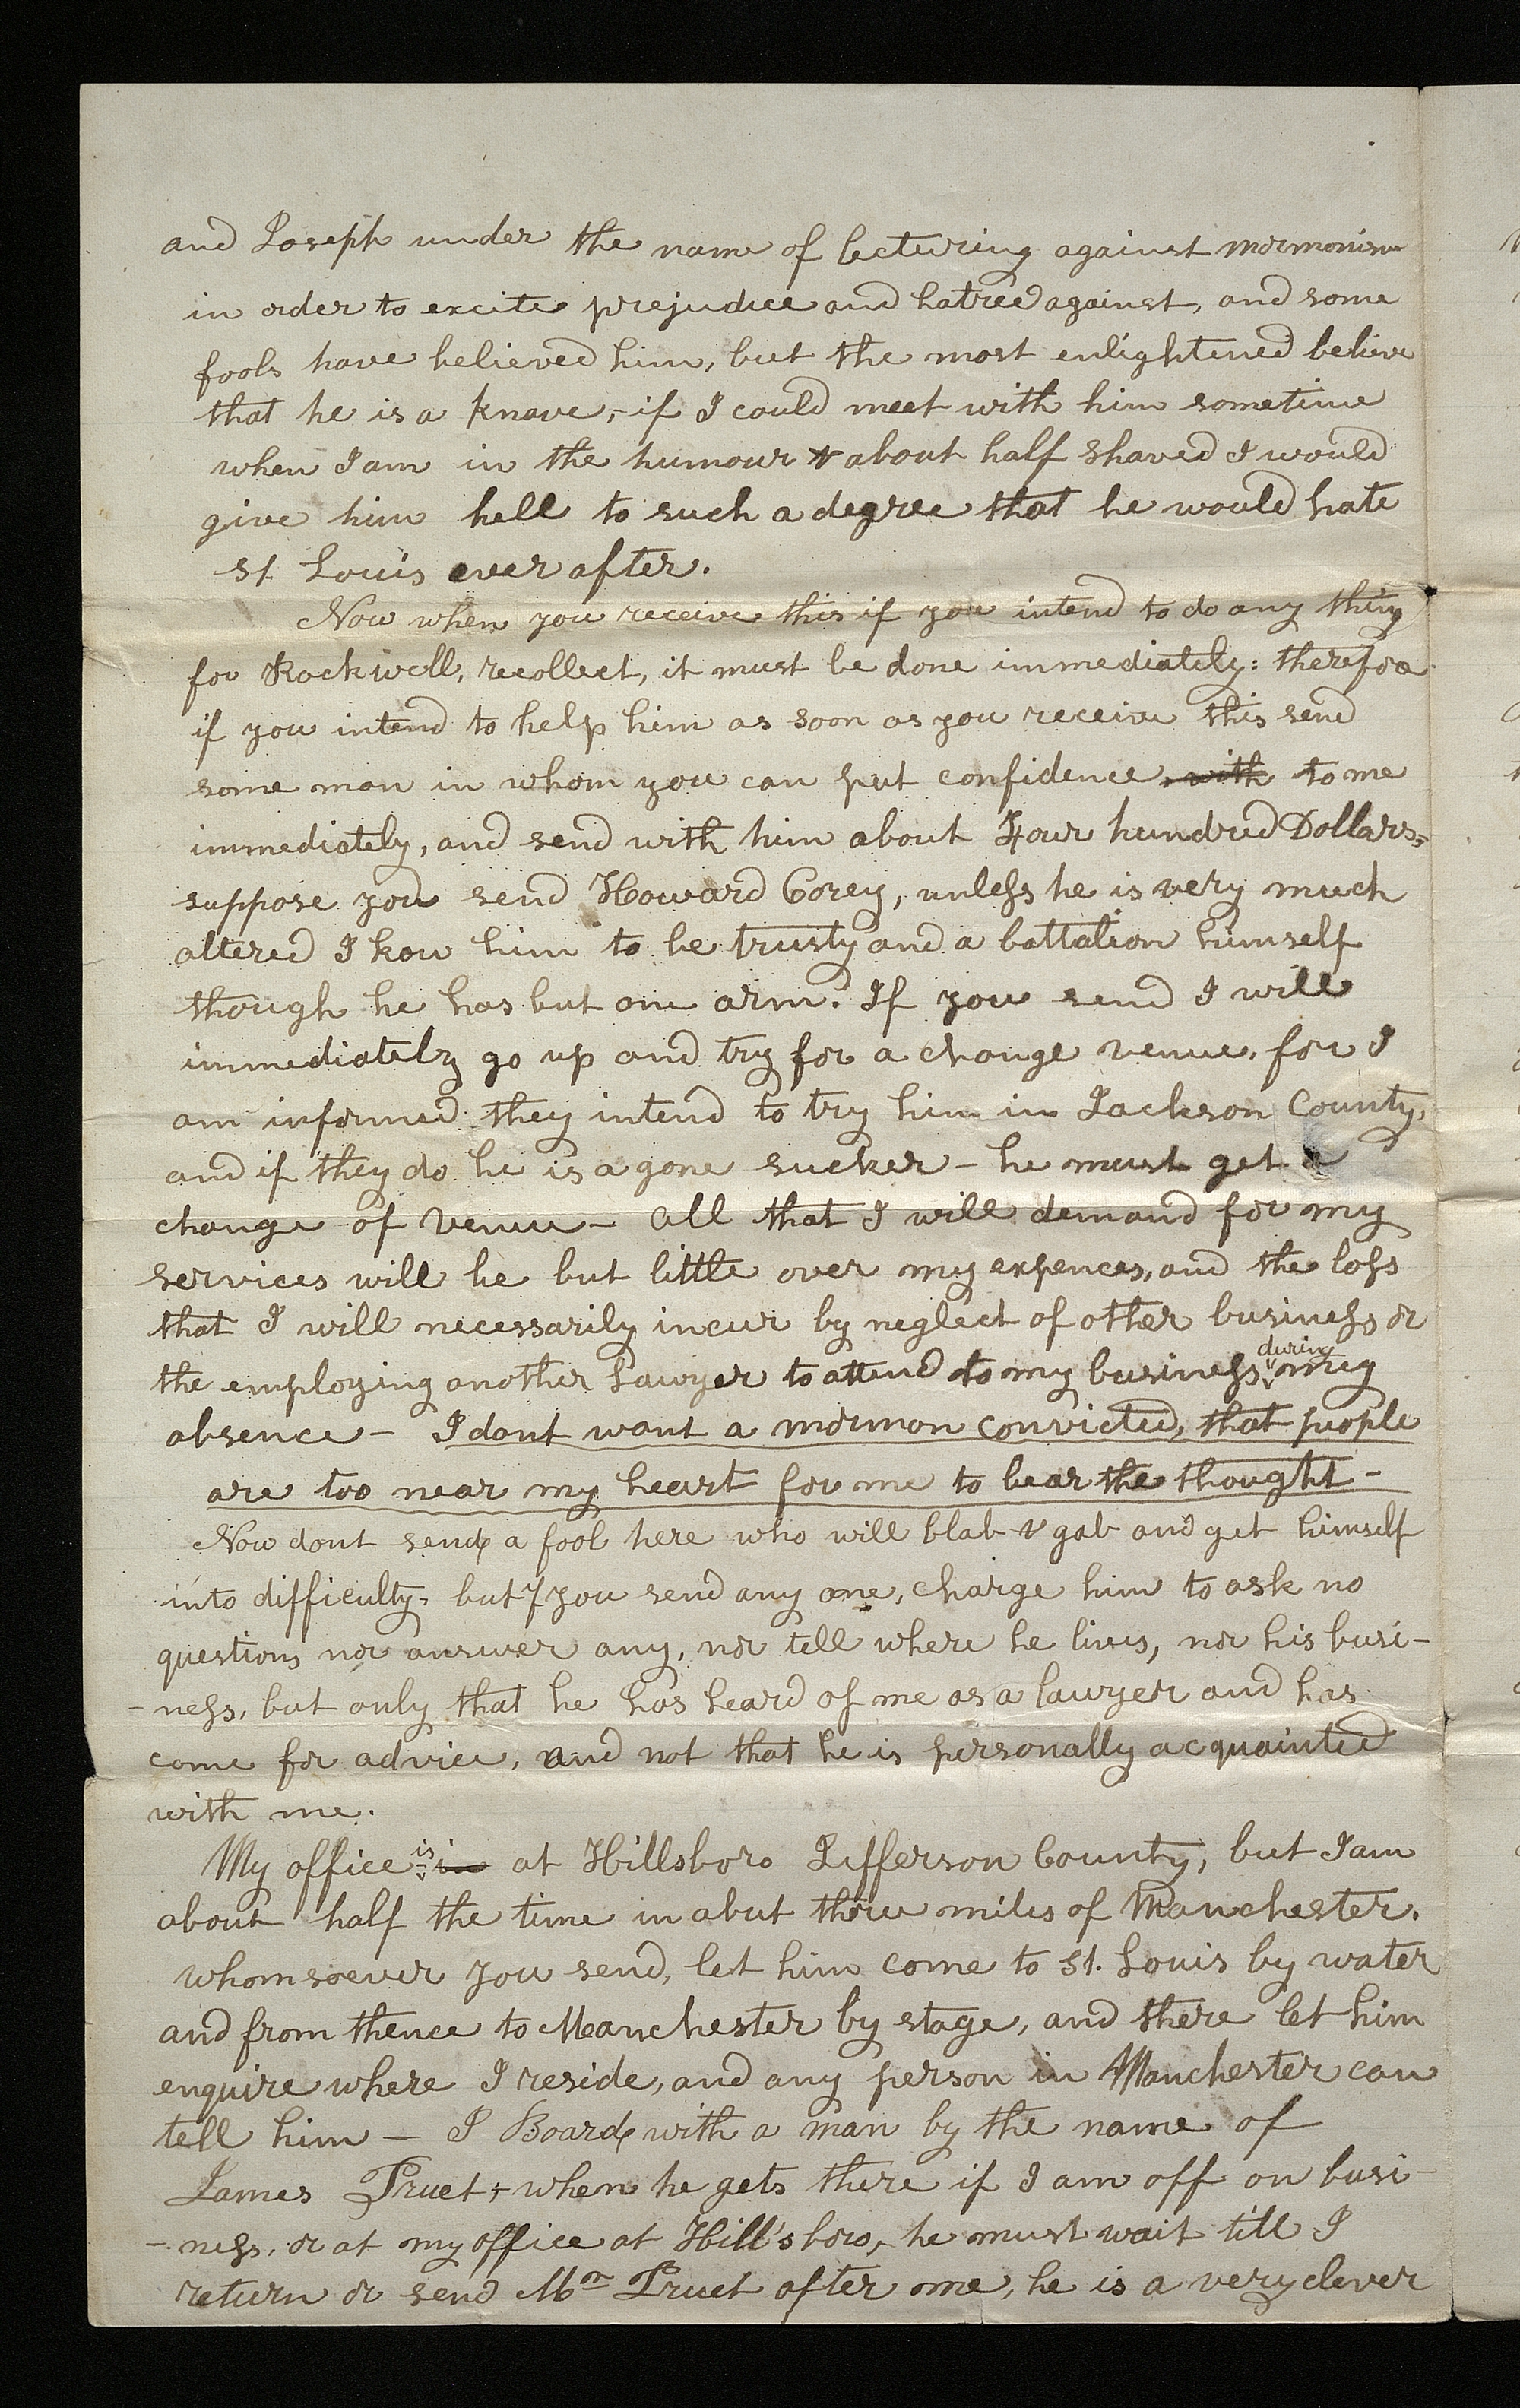 and Joseph under the name of lecturing against mormonism
in order to excite prejudice and hatred against, and some
fools have believed him, but the most enlightened believe
that he is a knave,- if I could meet with him sometime
when I am in the humour & about half shaved I would
give him hell to such a degree that he would hate
St. Louis ever after.
Now when you receive this if you intend to do any thing
for Rockwell, recollect, it must be done immediately: therefore
if you intend to help him as soon as you receive this send
some man in whom you can put confidence with to me
immediately, and send with him about Four hundred Dollars,
suppose you send Howard Corey, unless he is very much
altered I kow him to be trusty and a battalion himself
though he has but one arm. If you send I will
immediately go up and try for a change venue, for I
am informed they intend to try him in Jackson County,
and if they do he is a gone sucker - he must get a
change of venue - All that I will demand for my
services will be but little over my expences, and the loss
that I will necessarily incur by neglect of other business or
the employing another Lawyer to attend to my business during my
absence - I dont want a mormon convicted, that people
are too near my heart for me to bear the thought -
Now dont send a fool here who will blab & gab and get himself
into difficulty, but if you send any one, charge him to ask no
questions nor answer any, nor tell where he lives, nor his busi-
-ness, but only that he has heard of me as a lawyer and has
come for advice, and not that he is personally acquainted
with me.
My office is in at Hillsboro Jefferson County, but I am
about half the time in abut three miles of Manchester.
whomsoever you send, let him come to St. Louis by water
and from thence to Manchester by stage, and there let him
enquire where I reside, and any person in Manchester can
tell him - I Board with a man by the name of
James Pruet, when he gets there if I am off on busi-
-ness, or at my office at Hill'sboro, he must wait till I
return or send Mr Pruet after me, he is a very clever